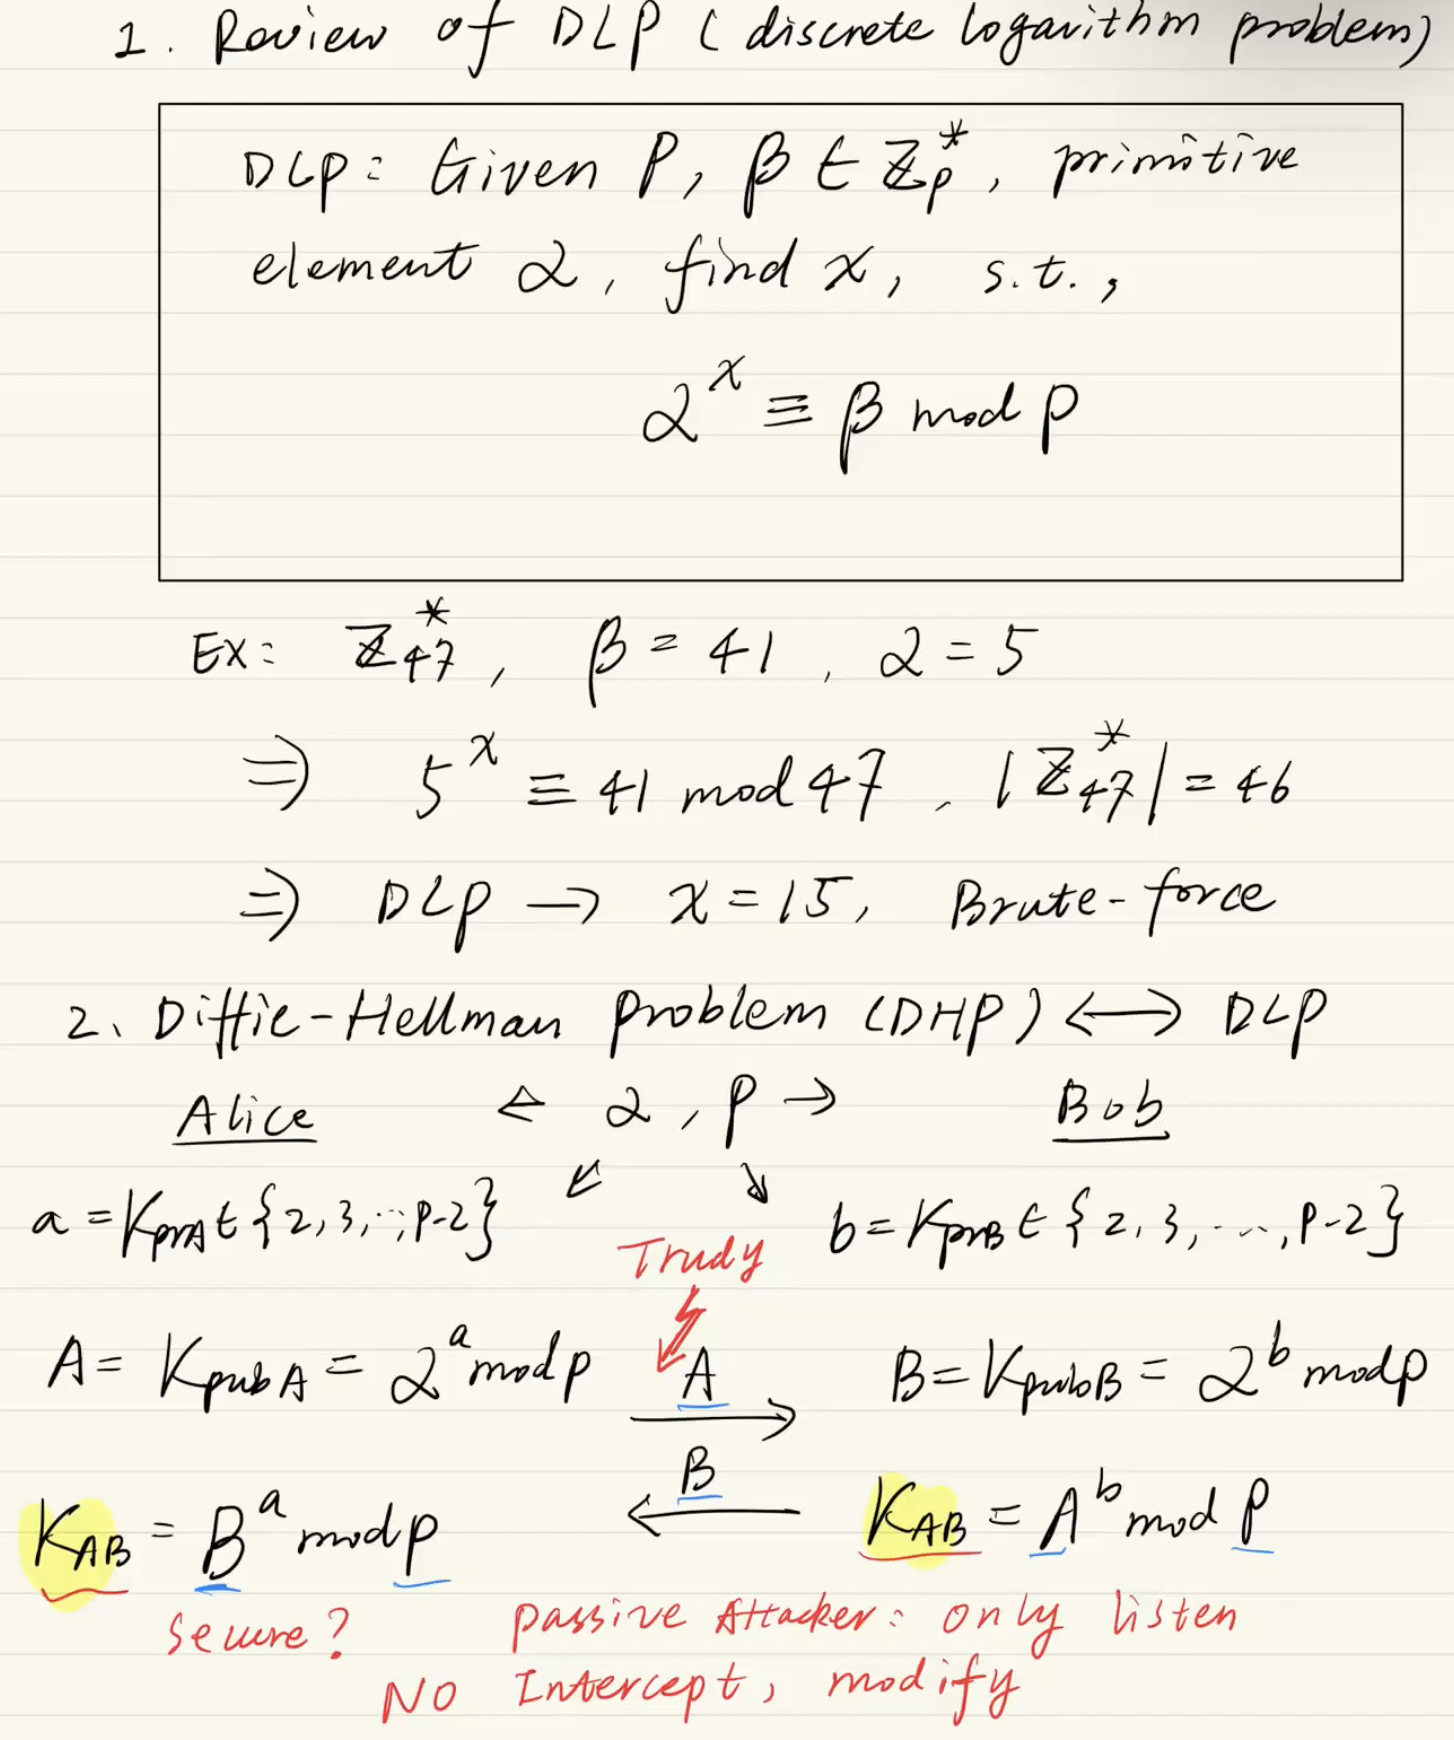 1. Review of DLP (discrete logarithm problem)
DLP: Given P, β ∈ ℤ*ₚ, primitive
element α, find x, s.t.,
α^x ≡ β mod P
Ex: ℤ*₄₇, β = 41, α = 5
⇒ 5^x ≡ 41 mod 47, |ℤ*₄₇| = 46
⇒ DLP → x = 15, Brute-force
2. Diffie-Hellman Problem (DHP) ↔ DLP
Alice ← α, P → Bob
a = K_prA ∈ {2,3,…,P-2} ↙ ↘ b = K_prB ∈ {2,3,…,P-2}
Trudy
A = K_pubA = α^a mod p A → B = K_pubB = α^b mod p
K_AB = B^a mod p ← B K_AB = A^b mod P
Secure? Passive Attacker: only listen
NO Intercept, modify